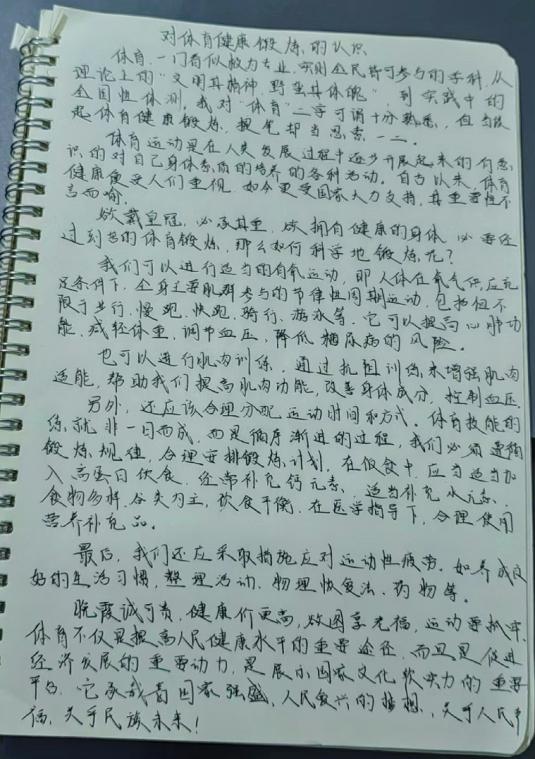 对体育健康锻炼的认识
体育,一门看似极为专业,实则全民皆可参与的学科,从
理论上的“文明其精神,野蛮其体魄”,到实践中的
全国性体测,我对“体育”二字可谓十分熟悉,但当谈
起体育健康锻炼,提笔却当思索一二。
体育运动是在人类发展过程中逐步开展起来的有意
识的对自己身体素质的培养的各种活动。自古以来,体育
健康便受人们重视,如今更受国家大力支持,其重要性不
言而喻。
欲戴皇冠,必承其重,欲拥有健康的身体,必要经
过刻苦的体育锻炼,那么如何科学地锻炼呢?
我们可以进行适当的有氧运动,即人体在氧气供应充
足条件下,全身主要肌群参与的节律性周期运动,包括但不
限于步行,慢跑,快跑,骑行,游泳等,它可以提高心肺功
能,减轻体重,调节血压,降低糖尿病的风险。
也可以进行肌肉训练,通过抗阻训练来增强肌肉
适能,帮助我们提高肌肉功能,改善身体成分,控制血压
另外,还应该合理分配运动时间和方式。体育技能的
练就非一日而成,而是循序渐进的过程,我们必须遵循
锻炼规律,合理安排锻炼计划,在饮食中,应当适当加
入高蛋白饮食,经常补充钙元素,适当补充水元素,
食物多样,谷类为主,饮食平衡,在医学指导下,合理使用
营养补充品。
最后,我们还应采取措施应对运动性疲劳,如养成良
好的生活习惯,整理活动,物理恢复法,药物等。
晚霞诚可贵,健康价更高,欲图享光福,运动要抓牢,
体育不仅是提高人民健康水平的重要途径,而且是促进
经济发展的重要动力,是展示国家文化软实力的重要
平台,它承载着国家强盛,人民复兴的梦想,关乎人民幸
福,关乎民族未来!